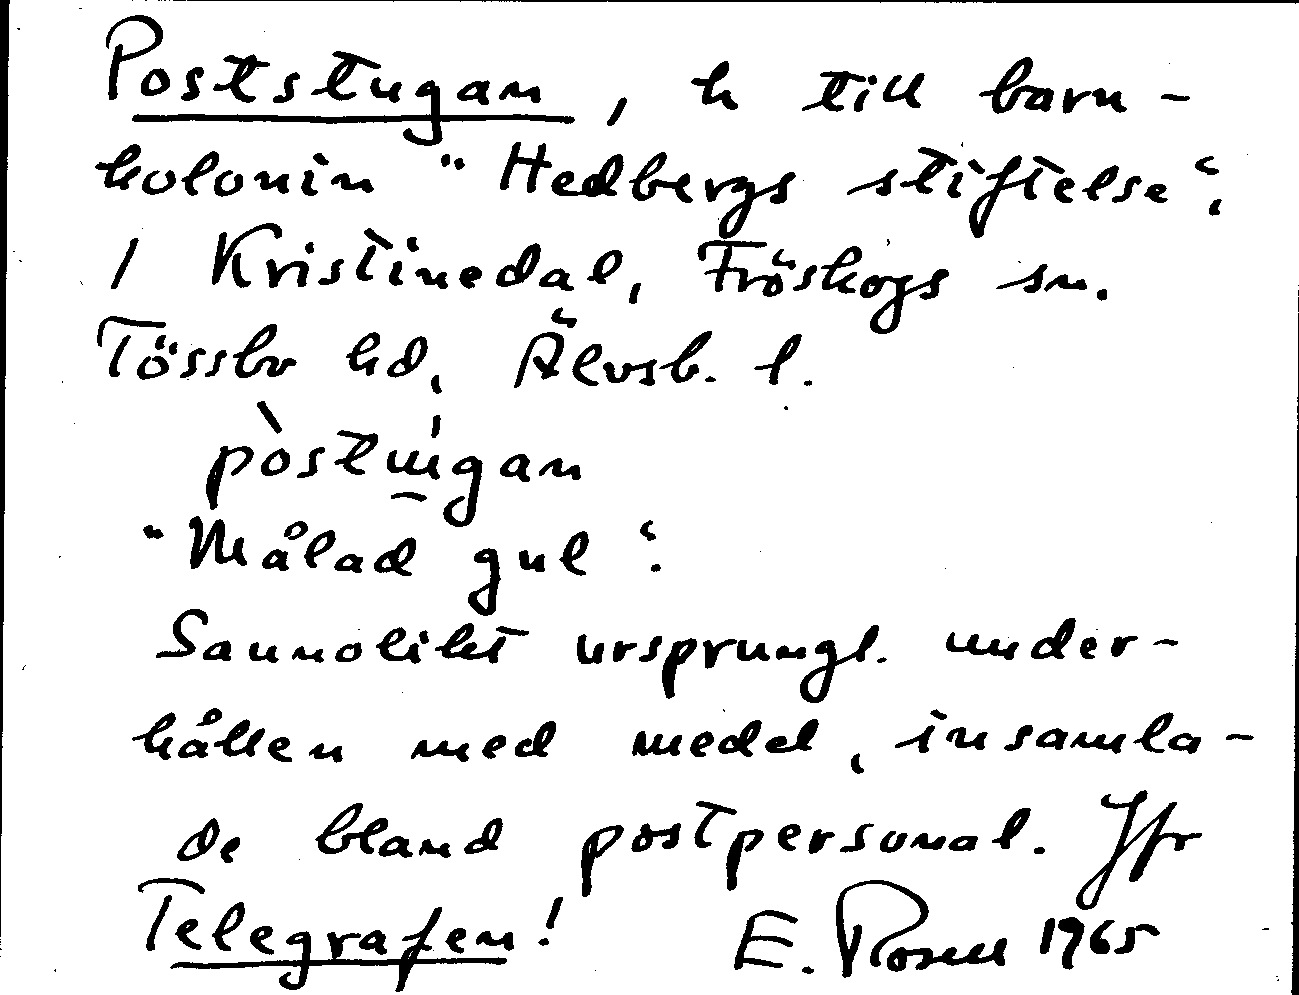 Poststugan, h till barn-
kolonin "Hedbergs stiftelse",
/ Kristinedal, Fröskogs sn.
Tössbo hd, Älvsb. l.
pòstúigan
"Målad gul".
Sannolikt ursprungl. under-
hållen med medel, insamla-
de bland postpersonal. Jfr
Telegrafen! E. Rosell 1965